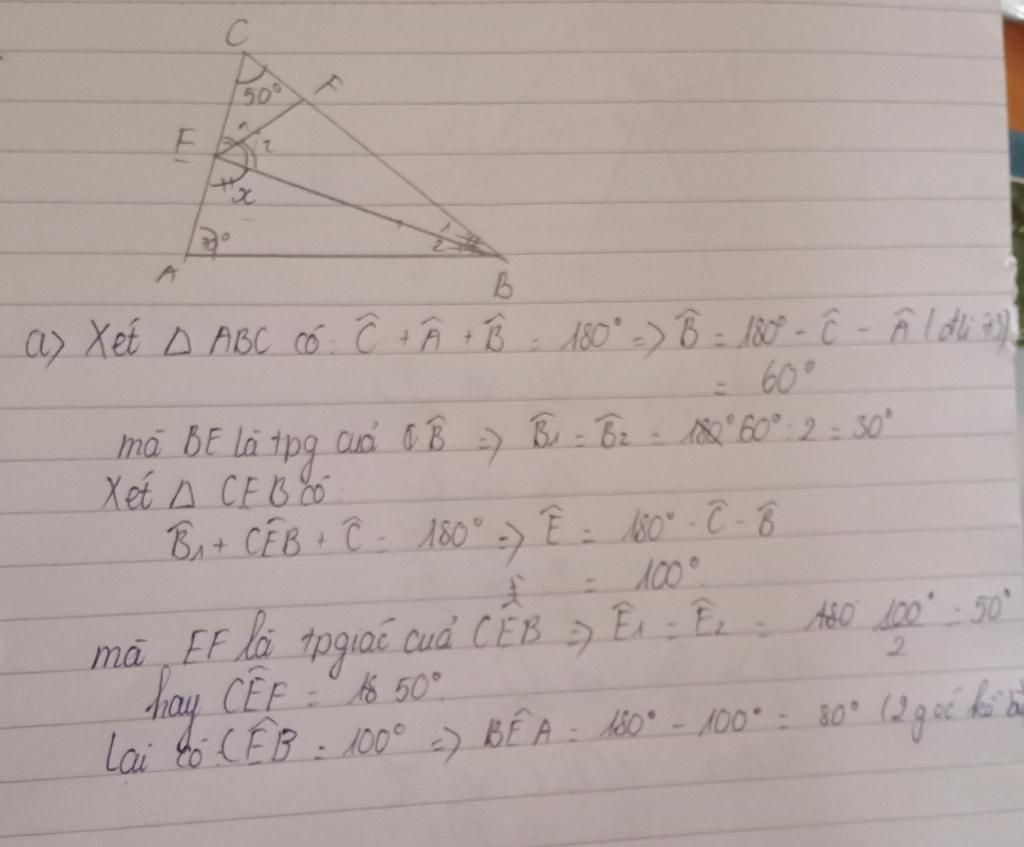 C
50°
F
E
1
2
x
70°
1
2
A
B
a) Xét Δ ABC có: Ĉ + Â + B̂ = 180° => B̂ = 180° - Ĉ - Â (đlí t3)
= 60°
mà BE là tpg cuả B̂ => B̂1 = B̂2 = 60° : 2 = 30°
Xét Δ CEB có
B̂1 + CÊB + Ĉ = 180° => Ê = 180° - Ĉ - B̂
= 100°
mà EF là tpgiác cuả CÊB => Ê1 = Ê2 = 100°/2 = 50°
hay CÊF = 50°.
Lại có CÊB = 100° => BÊA = 180° - 100° = 80° (2 góc kề